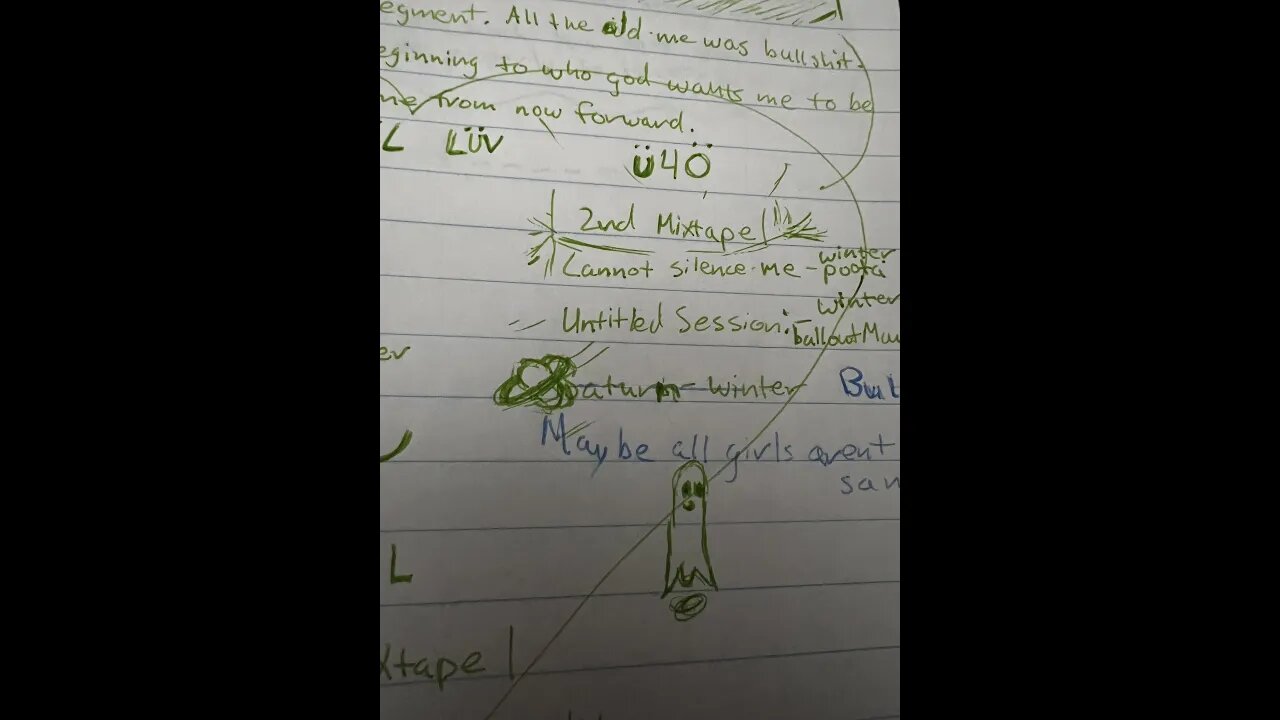 egment. All the old me was bullshit.
eginning to who god wants me to be
me from now forward.
L LÜV
Ü4Ö
2nd Mixtape
Cannot silence me - winter poota
Untitled Session: - winter balloutMau
er
Saturn - winter But
Maybe all girls arent
san
L
xtape